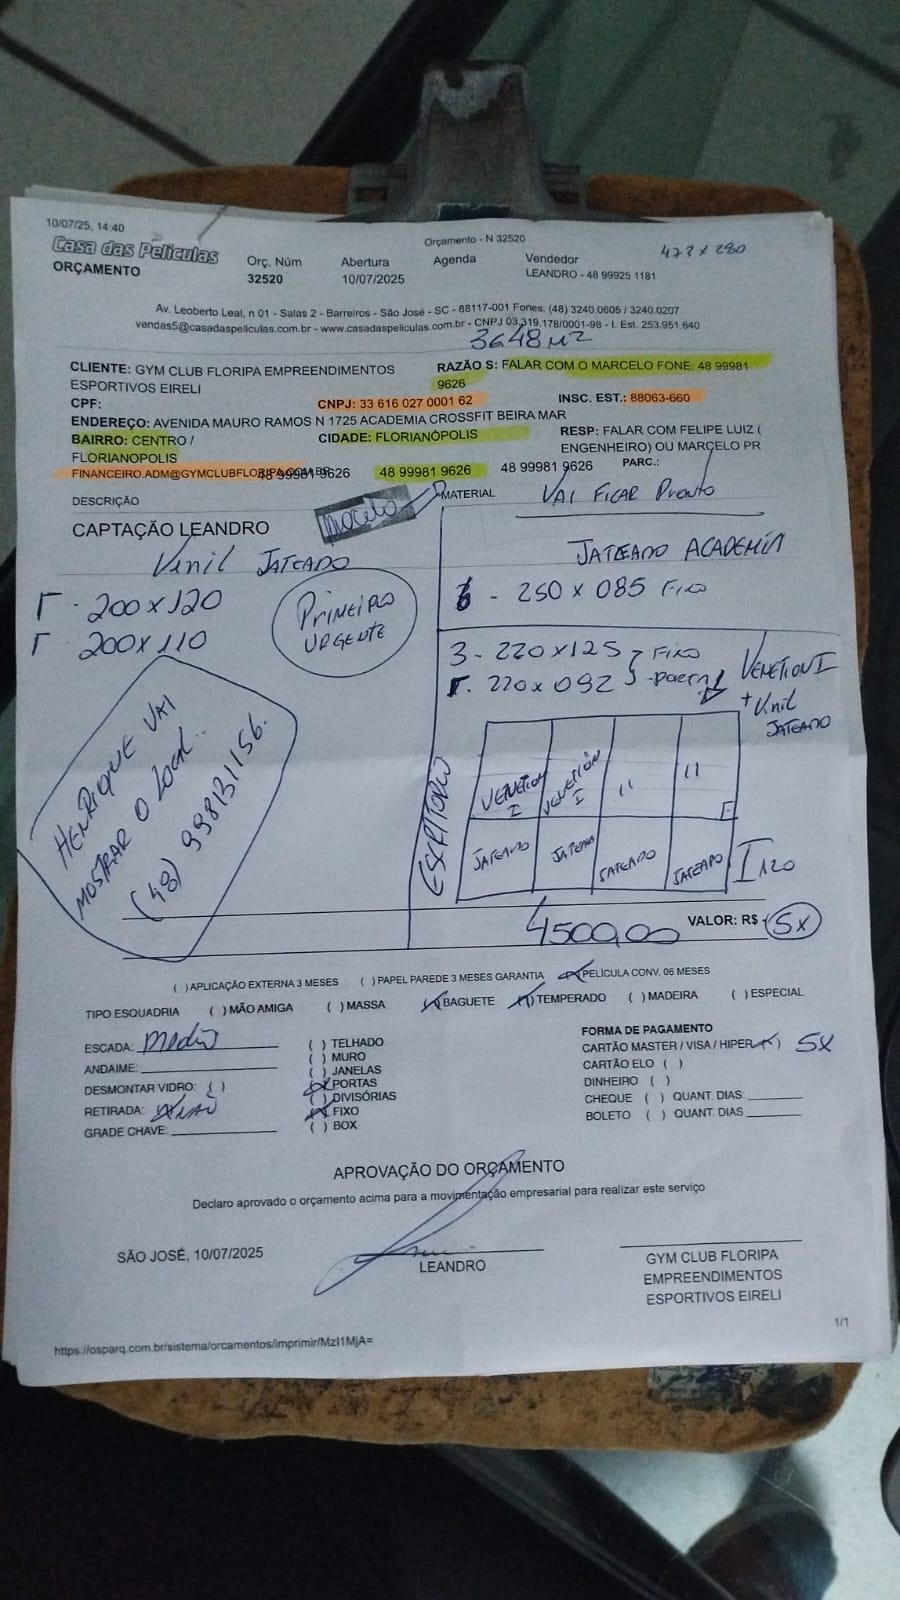 10/07/25, 14:40
Orçamento - N 32520
473 x 280
Casa das Películas
ORÇAMENTO
Orç. Núm
32520
Abertura
10/07/2025
Agenda
Vendedor
LEANDRO - 48 99925 1181
Av. Leoberto Leal, n 01 - Salas 2 - Barreiros - São José - SC - 88117-001 Fones: (48) 3240.0605 / 3240.0207
vendas5@casadaspeliculas.com.br - www.casadaspeliculas.com.br - CNPJ 03.319.178/0001-98 - I. Est. 253.951.640
3648 M2
CLIENTE: GYM CLUB FLORIPA EMPREENDIMENTOS
ESPORTIVOS EIRELI
RAZÃO S: FALAR COM O MARCELO FONE: 48 99981
9626
CPF:
CNPJ: 33 616 027 0001 62
INSC. EST.: 88063-660
ENDEREÇO: AVENIDA MAURO RAMOS N 1725 ACADEMIA CROSSFIT BEIRA MAR
BAIRRO: CENTRO /
FLORIANOPOLIS
CIDADE: FLORIANÓPOLIS
RESP: FALAR COM FELIPE LUIZ (
ENGENHEIRO) OU MARCELO PR
FINANCEIRO.ADM@GYMCLUBFLORIPA.COM.BR
48 99981 9626
48 99981 9626
48 99981 9626
PARC.:
DESCRIÇÃO
MATERIAL
VAI FICAR PRONTO
CAPTAÇÃO LEANDRO
Vinil JATEADO
200 x 120
200 x 110
PRIMEIRO
URGENTE
HENRIQUE VAI
MOSTRAR O LOCAL..
(48) 998131156.
JATEADO ACADEMIA
6 - 250 x 085 FIXO
3 - 220 x 125 FIXO
220 x 092
VENETION I
+ Vinil
JATEADO
ESCRITORIO
VENETION
I
VENETION
I
11
11
JATEADO
JATEADO
JATEADO
JATEADO
I 120
4500,00
VALOR: R$
5x
( )APLICAÇÃO EXTERNA 3 MESES ( )PAPEL PAREDE 3 MESES GARANTIA (x)PELÍCULA CONV. 06 MESES
TIPO ESQUADRIA ( )MÃO AMIGA ( )MASSA (x)BAGUETE (x)TEMPERADO ( )MADEIRA ( )ESPECIAL
ESCADA: Media
ANDAIME:
DESMONTAR VIDRO: ( )
RETIRADA: NÃO
GRADE CHAVE:
( ) TELHADO
( ) MURO
( ) JANELAS
(x) PORTAS
( ) DIVISÓRIAS
(x) FIXO
( ) BOX
FORMA DE PAGAMENTO
CARTÃO MASTER / VISA / HIPER (x) 5x
CARTÃO ELO ( )
DINHEIRO ( )
CHEQUE ( ) QUANT. DIAS:
BOLETO ( ) QUANT. DIAS
APROVAÇÃO DO ORÇAMENTO
Declaro aprovado o orçamento acima para a movimentação empresarial para realizar este serviço
SÃO JOSÉ, 10/07/2025
LEANDRO
GYM CLUB FLORIPA
EMPREENDIMENTOS
ESPORTIVOS EIRELI
1/1
https://osparq.com.br/sistema/orcamentos/imprimir/MzI1MjA=